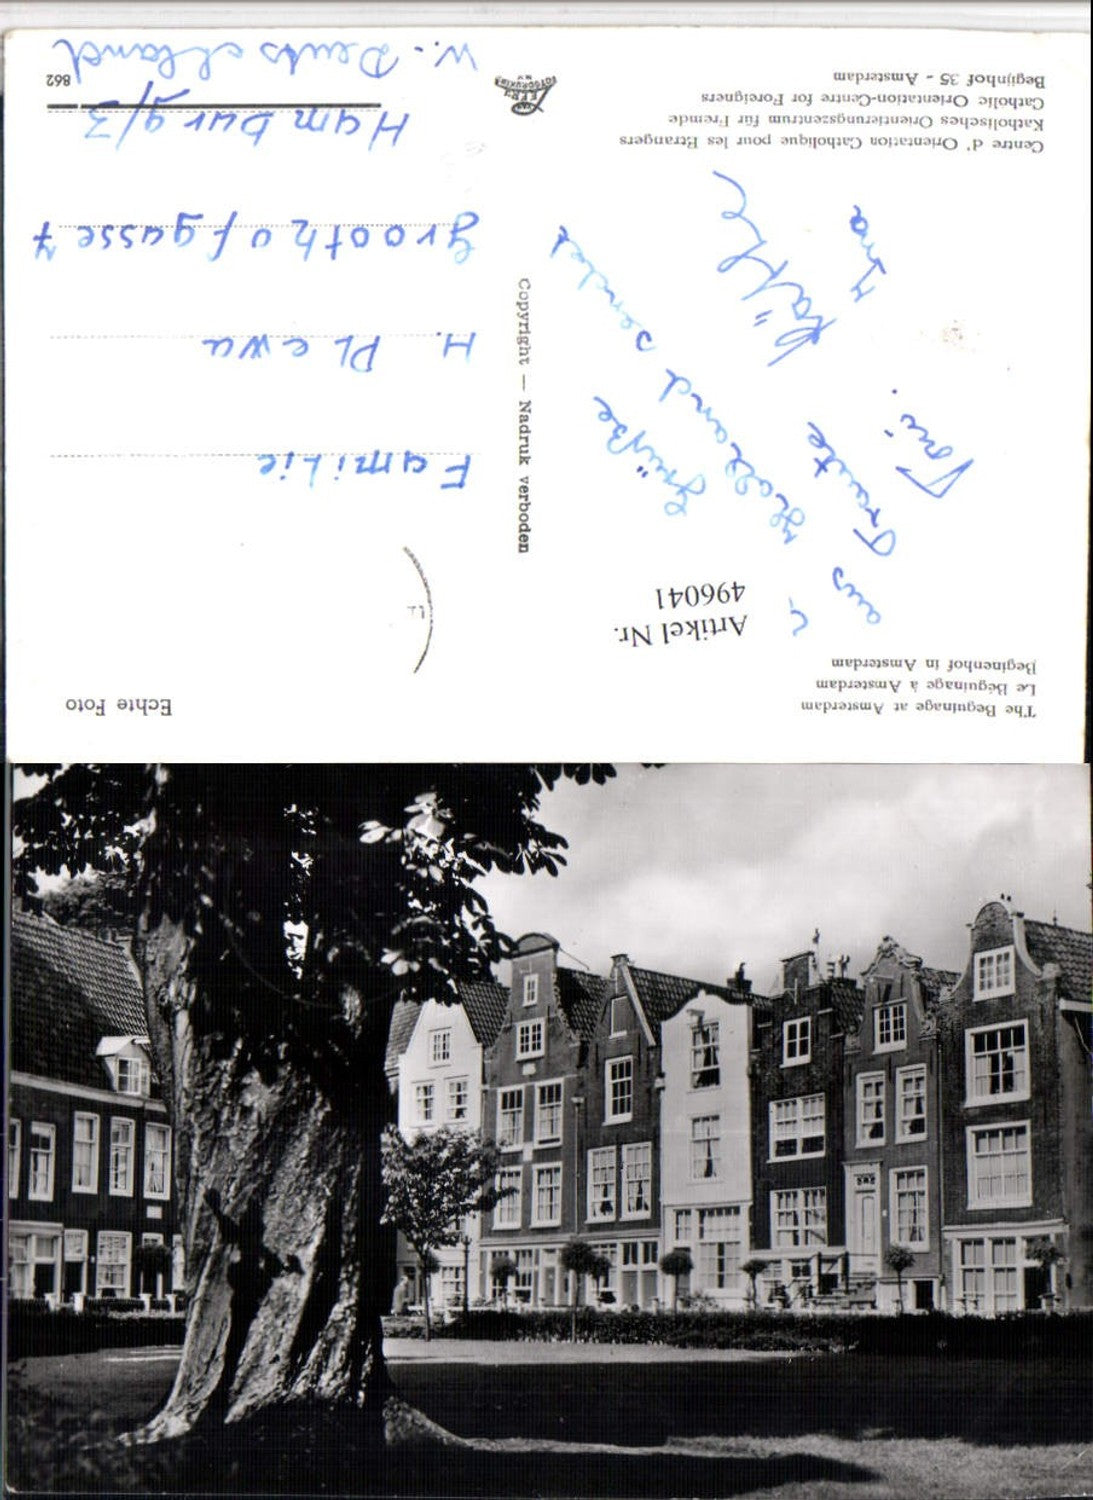 The Beguinage at Amsterdam
Le Béguinage à Amsterdam
Beginenhof in Amsterdam
Echte Foto
Artikel Nr.
496041
Grüße
aus Holland sendet
Käthe
Traute
Ina
Toni.
Copyright — Nadruk verboden
Familie
H. Plewa
Groothofgasse 7
Hamburg/3
W. Deutschland
Centre d' Orientation Catholique pour les Etrangers
Katholisches Orientierungszentrum für Fremde
Catholic Orientation-Centre for Foreigners
Begijnhof 35 - Amsterdam
862